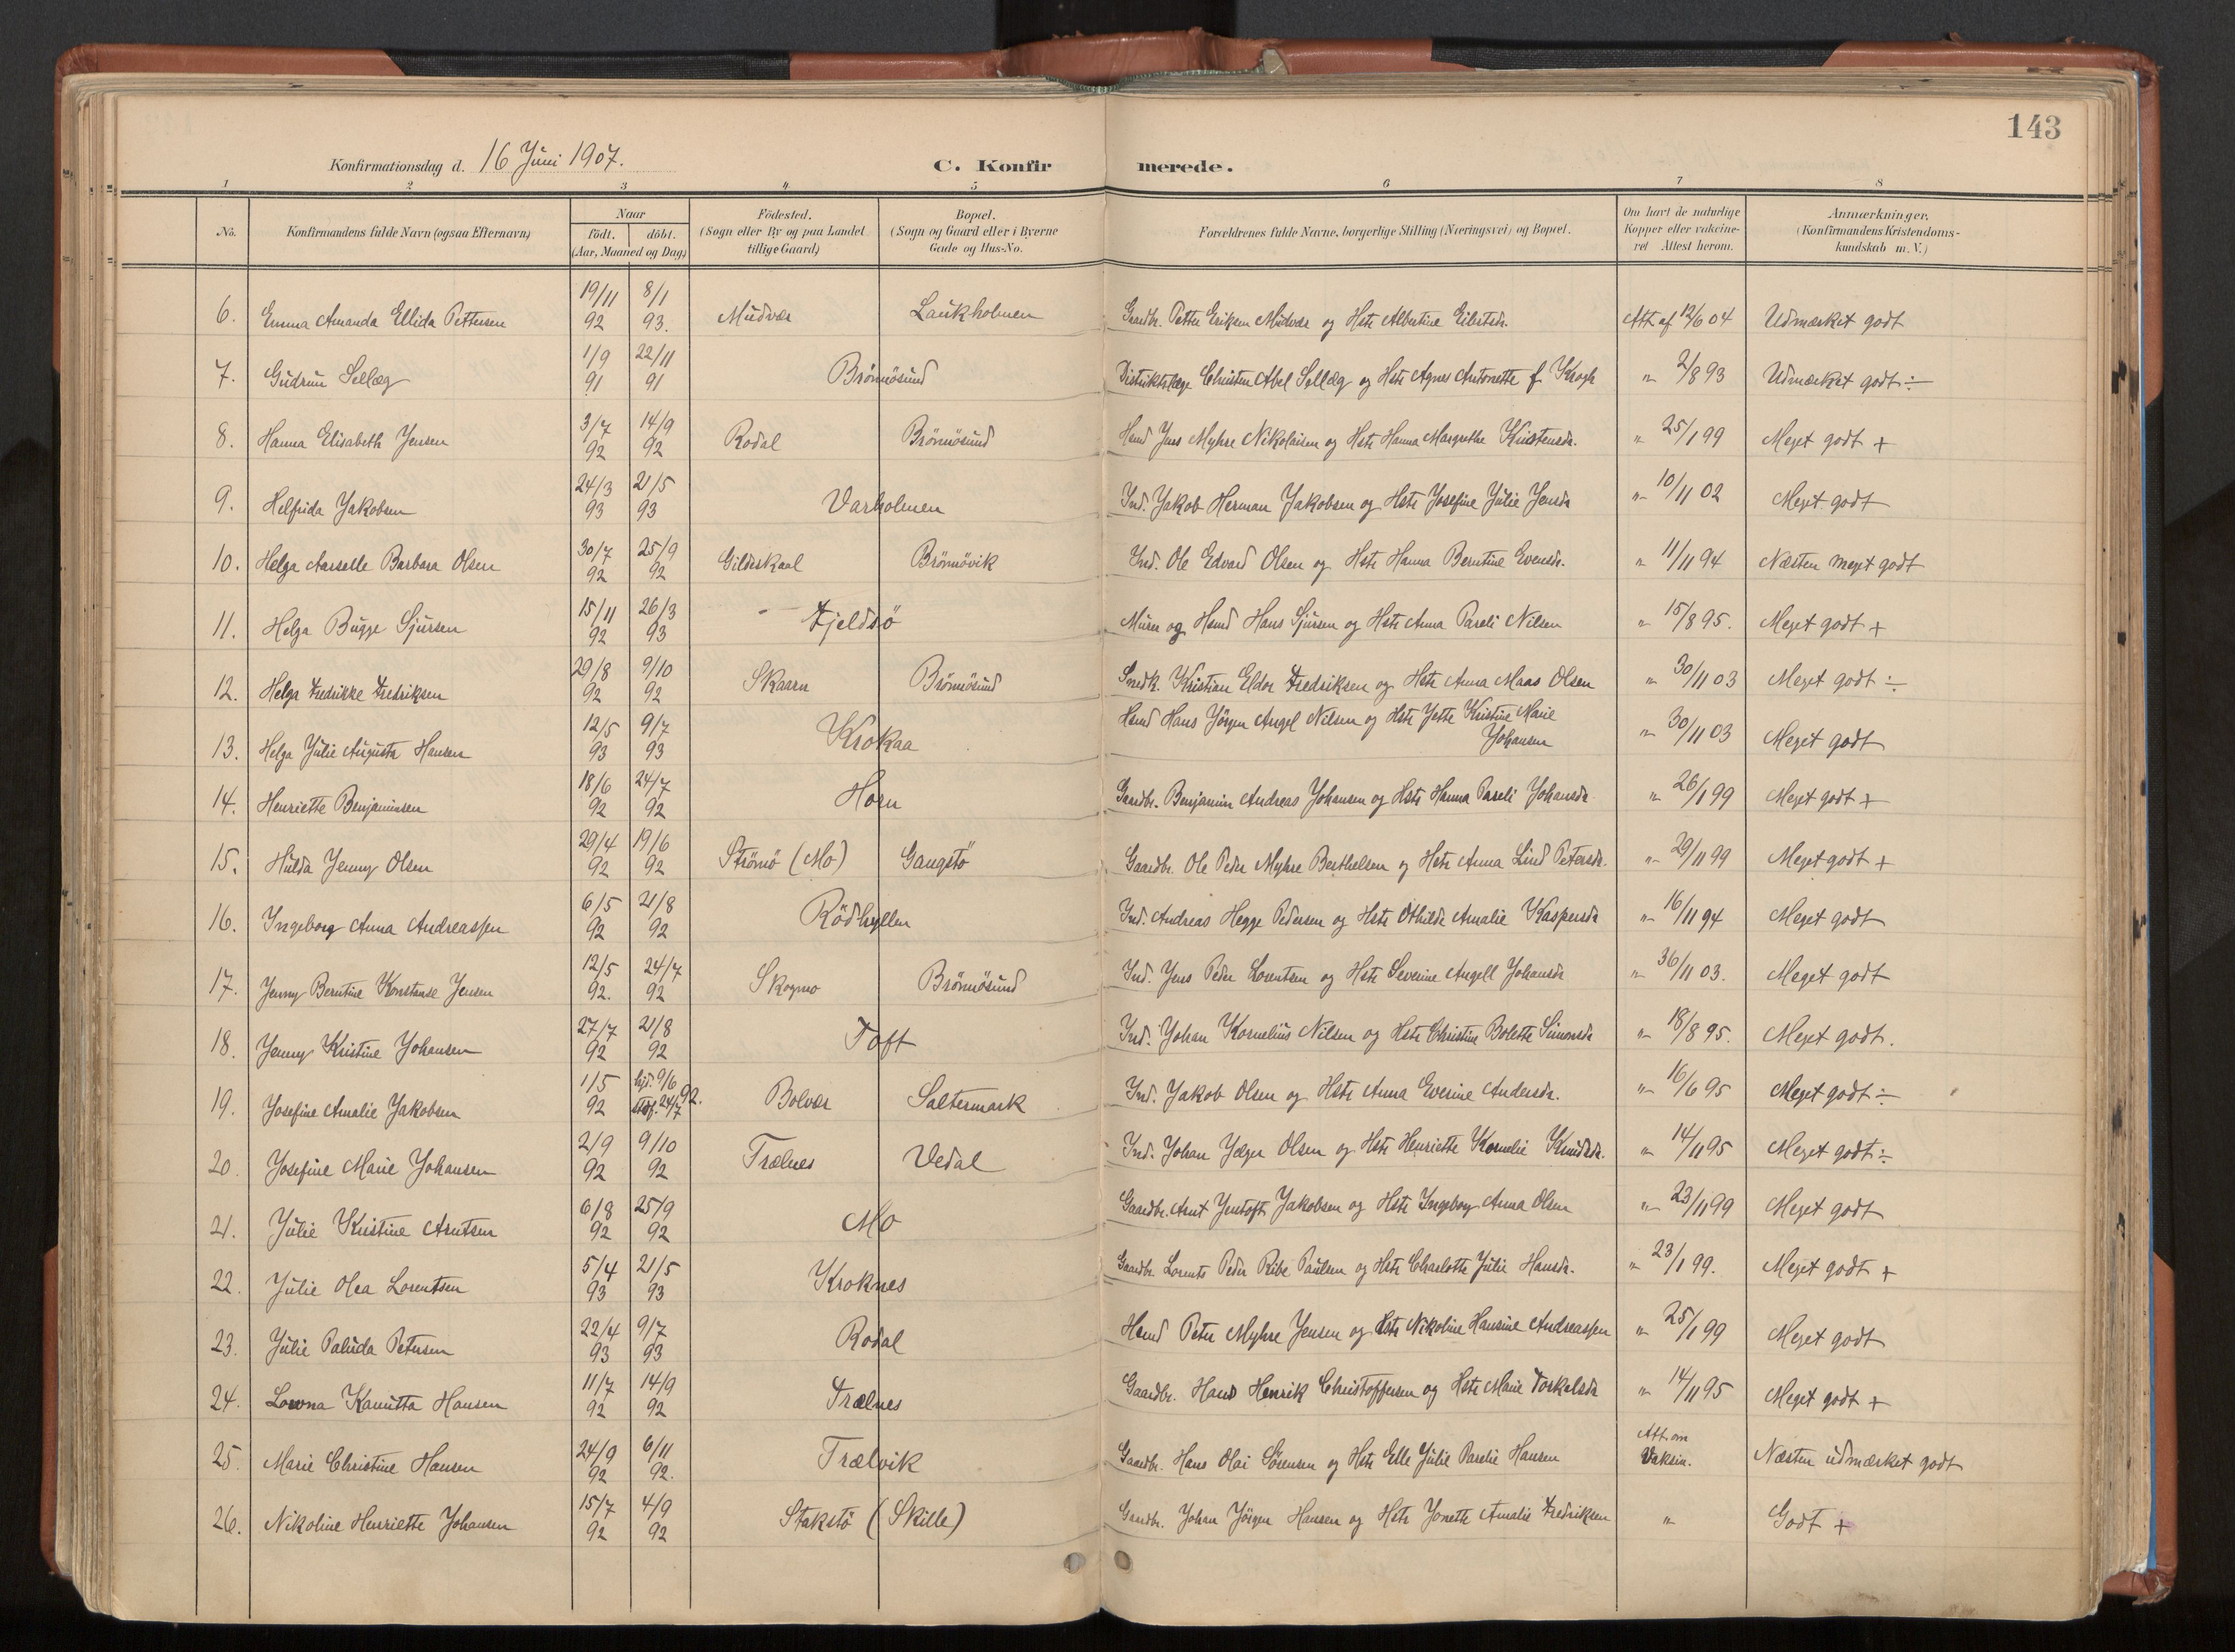 143
Konfirmationsdag d. 16 Juni 1907. C. Konfirmerede.
1 2 3 4 5 6 7 8
No. Konfirmandens fulde Navn (ogsaa Efternavn) Naar födt. döbt. (Aar, Maaned og Dag) Födested. (Sogn eller By og paa Landet tillige Gaard) Bopæl. (Sogn og Gaard eller i Byerne Gade og Hus-No. Forældrenes fulde Navne, borgerlige Stilling (Næringsvei) og Bopæl. Om havt de naturlige Kopper eller vakcineret Attest herom. Anmærkninger. (Konfirmandens Kristendomskundskab m. V.)
6. Emma Amanda Ellida Pettersen 19/11 92 8/1 93. Mudvær Laukholmen Gaardbr. Petter Eriksen Mudvær og Hstr Albertine Eilertsdr. Att af 12/6 04 Udmærket godt
7. Gudrun Sellæg 1/9 91 22/11 91 Brönnösund Distriktslæge Christen Abel Sellæg og Hstr Agnes Antonette f Krogh " 2/8 93 Udmærket godt ÷
8. Hanna Elisabeth Jensen 3/7 92 14/9 92 Rodal Brönnösund Hsmd Jens Myhre Nikolaisen og Hstr Hanna Margrethe Kristensdr. " 25/1 99 Meget godt +
9. Helfrida Jakobsen 24/3 93 21/5 93 Varholmen Ind. Jakob Herman Jakobsen og Hstr Josefine Julie Jensdr " 10/11 02 Meget godt
10. Helga Aarselle Barbara Olsen 30/7 92 25/9 92 Gildeskaal Brönnövik Ind. Ole Edvard Olsen og Hstr Hanna Berntine Evensdr. " 11/11 94 Næsten meget godt
11. Helga Bugge Sjursen 15/11 92 26/3 93 Fjeldsö Murer og Hsmd Hans Sjursen og Hstr Anna Pareli Nilsen " 15/8 95. Meget godt +
12. Helga Fredrikke Fredriksen 29/8 92 9/10 92 Skaarn Brönnösund Snedk. Kristian Eldor Fredriksen og Hstr Anna Maas Olsen " 30/11 03 Meget godt ÷
13. Helga Julie Augusta Hansen 12/5 93 9/7 93 Krokaa Hsmd Hans Jörgen Angel Nilsen og Hstr Jette Kristine Marie Johansen " 30/11 03 Meget godt
14. Henriette Benjaminsen 18/6 92 24/7 92 Horn Gaardbr. Benjamin Andreas Johansen og Hstr Hanna Pareli Johansdr. " 26/1 99 Meget godt +
15. Hulda Jenny Olsen 29/4 92 19/6 92 Strömö (Mo) Gangstö Gaardbr. Ole Peder Myhre Berthelsen og Hstr Anna Lind Petersdr. " 29/11 99 Meget godt +
16. Ingeborg Anna Andreassen 6/5 92 21/8 92 Rödhyllen Ind. Andreas Hegge Pedersen og Hstr Othilde Amalie Kaspersdr " 16/11 94 Meget godt
17. Jenny Berntine Konstanse Jensen 12/5 92. 24/7 92 Skogmo Brönnösund Ind. Jens Peder Lorentsen og Hstr Severine Angell Johansdr " 30/11 03. Meget godt
18. Jenny Kristine Johansen 27/7 92 21/8 92 Toft Ind. Johan Kornelius Nilsen og Hstr Christine Bolette Simonsdr " 18/8 95. Meget godt.
19. Josefine Amalie Jakobsen 1/5 92 hjd. 9/6 stdf. 24/7 92. Bolvær Saltermark Ind. Jakob Olsen og Hstr Anna Everine Andersdr. " 16/6 95 Meget godt ÷
20. Josefine Marie Johansen 2/9 92 9/10 92 Trælnes Vedal Ind. Johan Jelger Olsen og Hstr Henriette Kornelie Knudsdr. " 14/11 95 Meget godt ÷
21. Julie Kristine Arntsen 6/8 92 25/9 92 Mo Gaardbr. Arnt Jentoft Jakobsen og Hstr Ingeborg Anna Olsen " 23/11 99 Meget godt
22. Julie Olea Lorentsen 5/4 93 21/5 93 Kroknes Gaardbr. Lorents Peder Ribe Paulsen og Hstr Charlotte Julie Hansdr. " 23/1 99. Meget godt +
23. Julie Paluda Petersen 22/4 93 9/7 93 Rodal Hsmd Peter Myhre Jensen og Hstr Nikoline Hansine Andreassen " 25/1 99 Meget godt
24. Lovna Kanutta Hansen 11/7 92 14/9 92 Trælnes Gaardbr. Hans Henrik Christoffersen og Hstr Marie Torkelsdr " 14/11 95 Meget godt +
25. Marie Christine Hansen 24/9 92 6/11 92. Trælvik Gaardbr. Hans Olai Sörensen og Hstr Elle Julie Parelie Hansen Att om Vaksin. Næsten udmærket godt
26. Nikoline Henriette Johansen 15/7 92 4/9 92 Stakstö (Skille) Gaardbr. Johan Jörgen Hansen og Hstr Jonette Amalie Fredriksen " Godt +